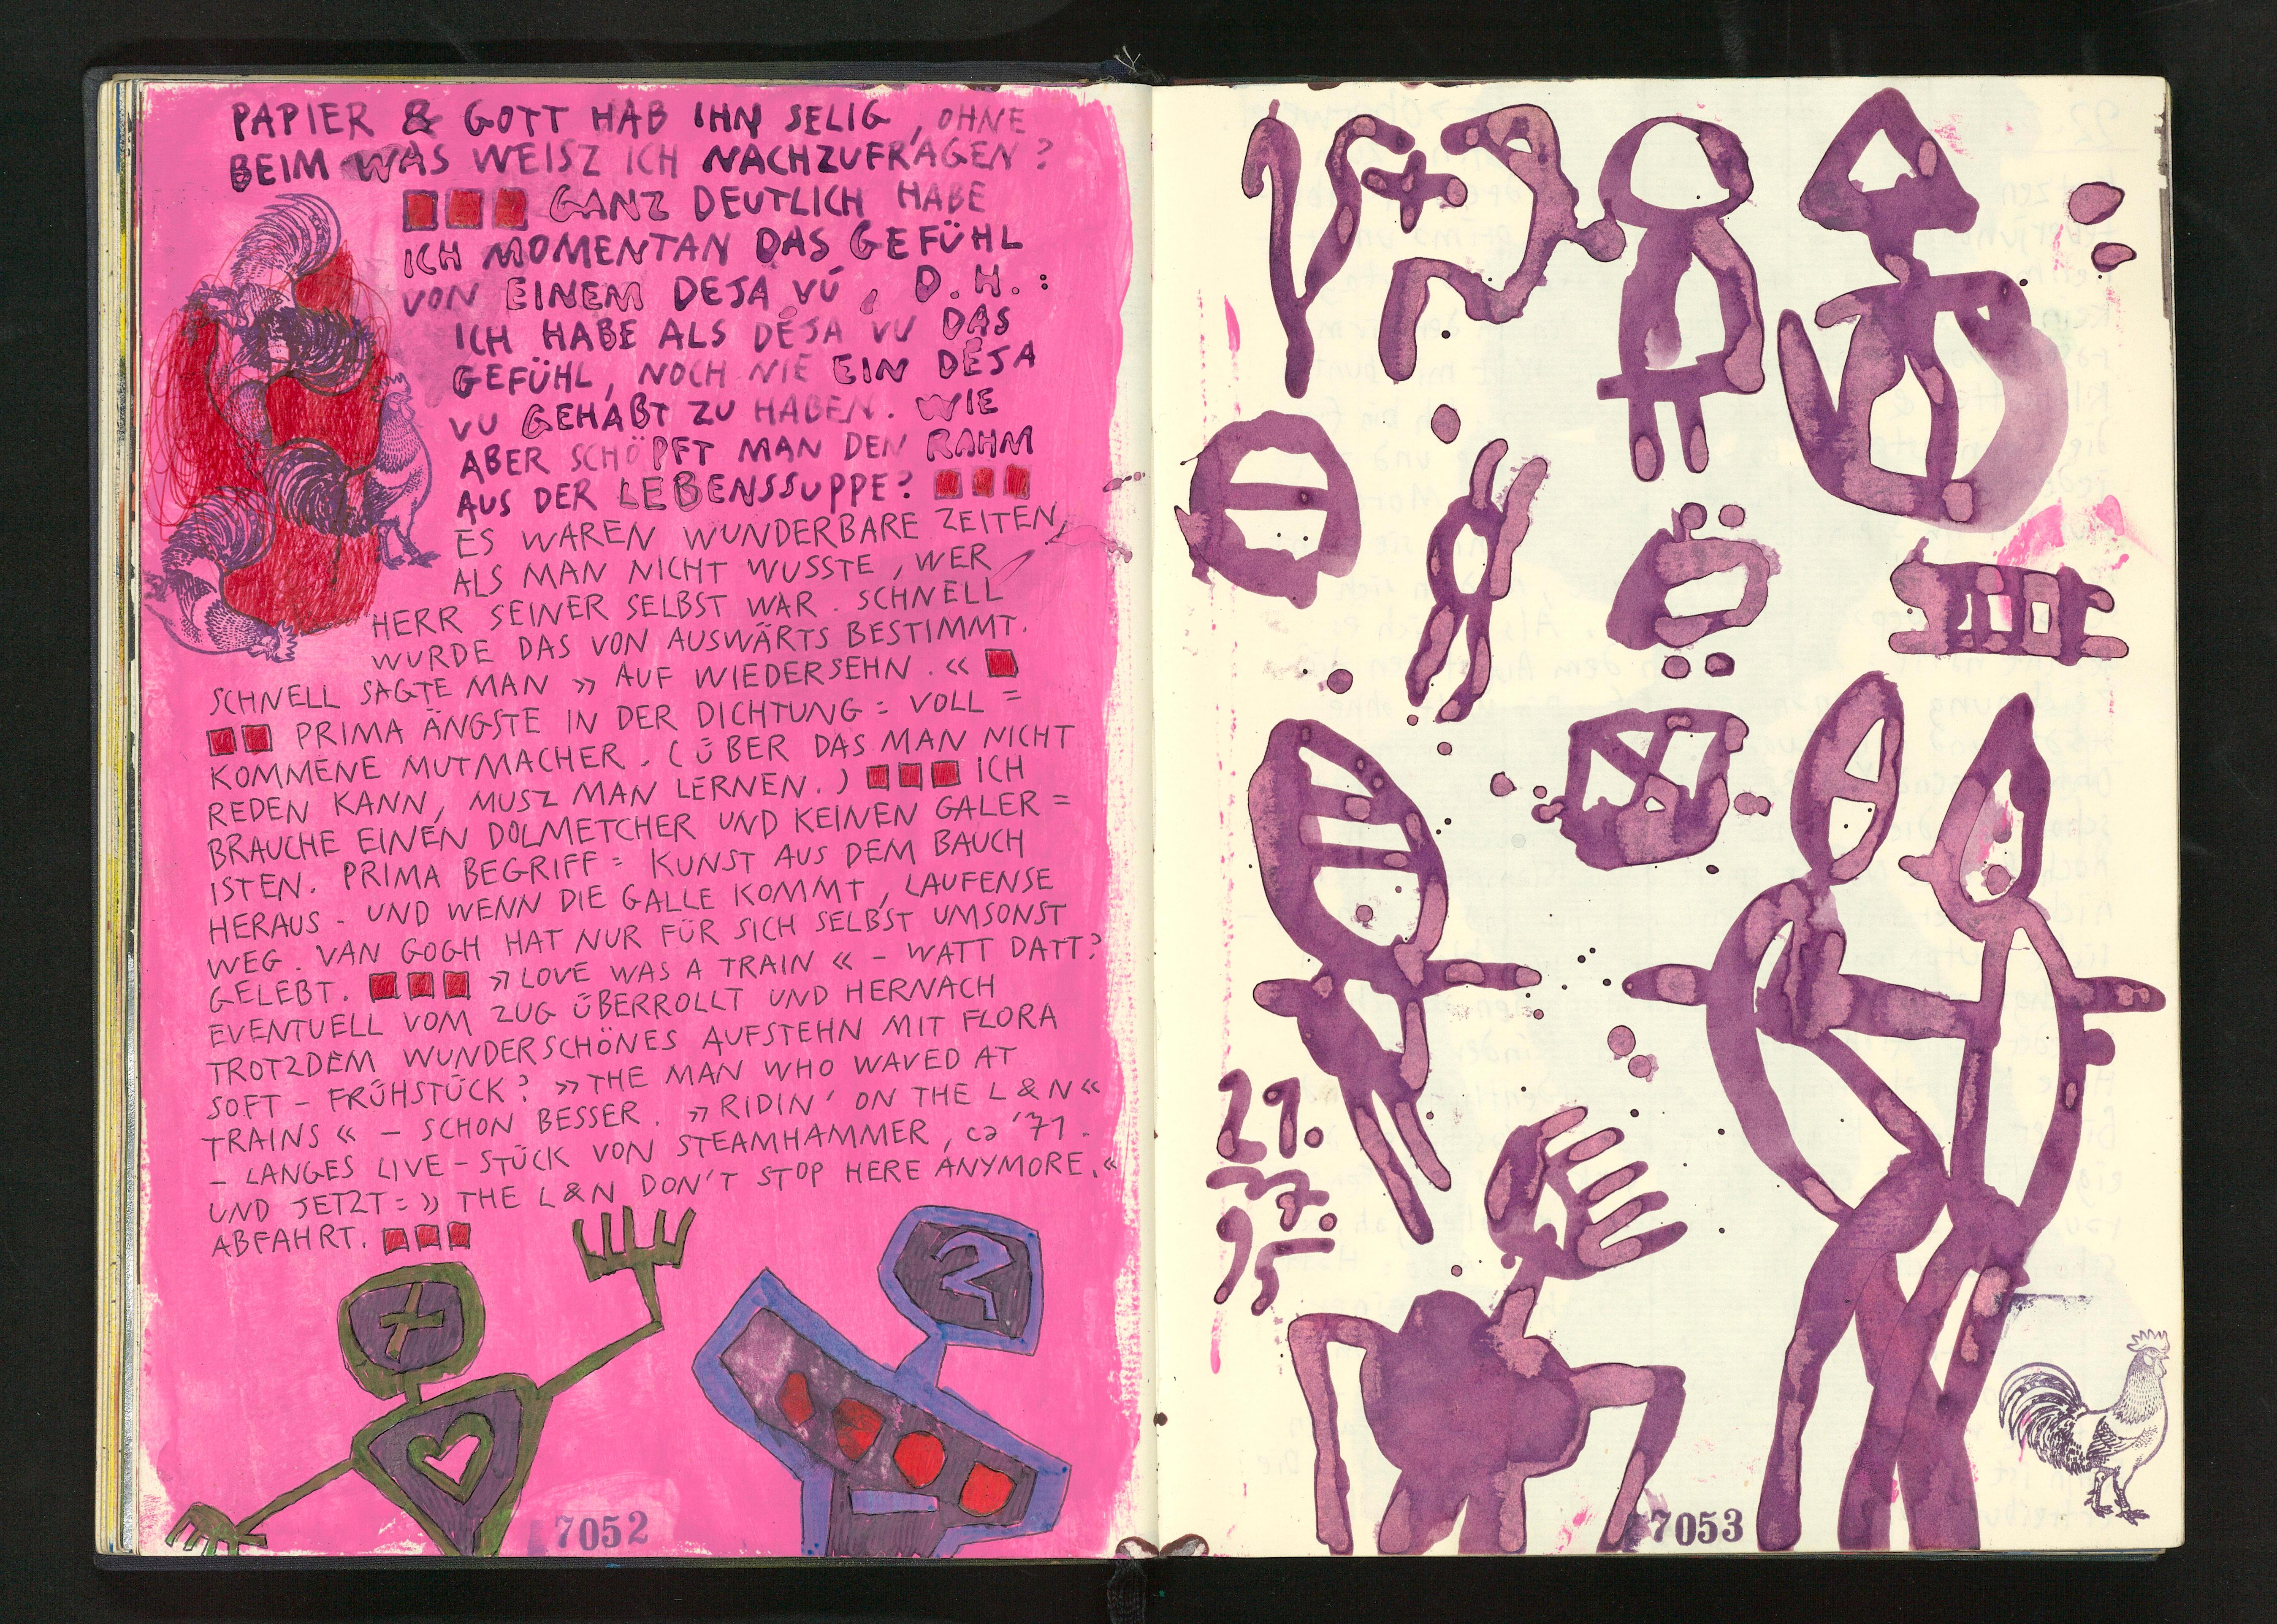 PAPIER & GOTT HAB IHN SELIG, OHNE
BEIM WAS WEISZ ICH NACHZUFRAGEN?
GANZ DEUTLICH HABE
ICH MOMENTAN DAS GEFÜHL
VON EINEM DEJA VÚ, D.H.:
ICH HABE ALS DÉJA VU DAS
GEFÜHL, NOCH NIE EIN DÉJA
VU GEHABT ZU HABEN. WIE
ABER SCHÖPFT MAN DEN RAHM
AUS DER LEBENSSUPPE?
ES WAREN WUNDERBARE ZEITEN,
ALS MAN NICHT WUSSTE, WER
HERR SEINER SELBST WAR. SCHNELL
WURDE DAS VON AUSWÄRTS BESTIMMT.
SCHNELL SAGTE MAN » AUF WIEDERSEHN. «
PRIMA ÄNGSTE IN DER DICHTUNG = VOLL =
KOMMENE MUTMACHER. (ÜBER DAS MAN NICHT
REDEN KANN, MUSZ MAN LERNEN.) ICH
BRAUCHE EINEN DOLMETCHER UND KEINEN GALER =
ISTEN. PRIMA BEGRIFF = KUNST AUS DEM BAUCH
HERAUS - UND WENN DIE GALLE KOMMT, LAUFENSE
WEG. VAN GOGH HAT NUR FÜR SICH SELBST UMSONST
GELEBT. » LOVE WAS A TRAIN « - WATT DATT?
EVENTUELL VOM ZUG ÜBERROLLT UND HERNACH
TROTZDEM WUNDERSCHÖNES AUFSTEHN MIT FLORA
SOFT - FRÜHSTÜCK? » THE MAN WHO WAVED AT
TRAINS « - SCHON BESSER. » RIDIN' ON THE L & N «
- LANGES LIVE - STÜCK VON STEAMHAMMER, ca '71.
UND JETZT = » THE L & N DON'T STOP HERE ANYMORE. «
ABFAHRT.
7052
29.
7.
95
7053